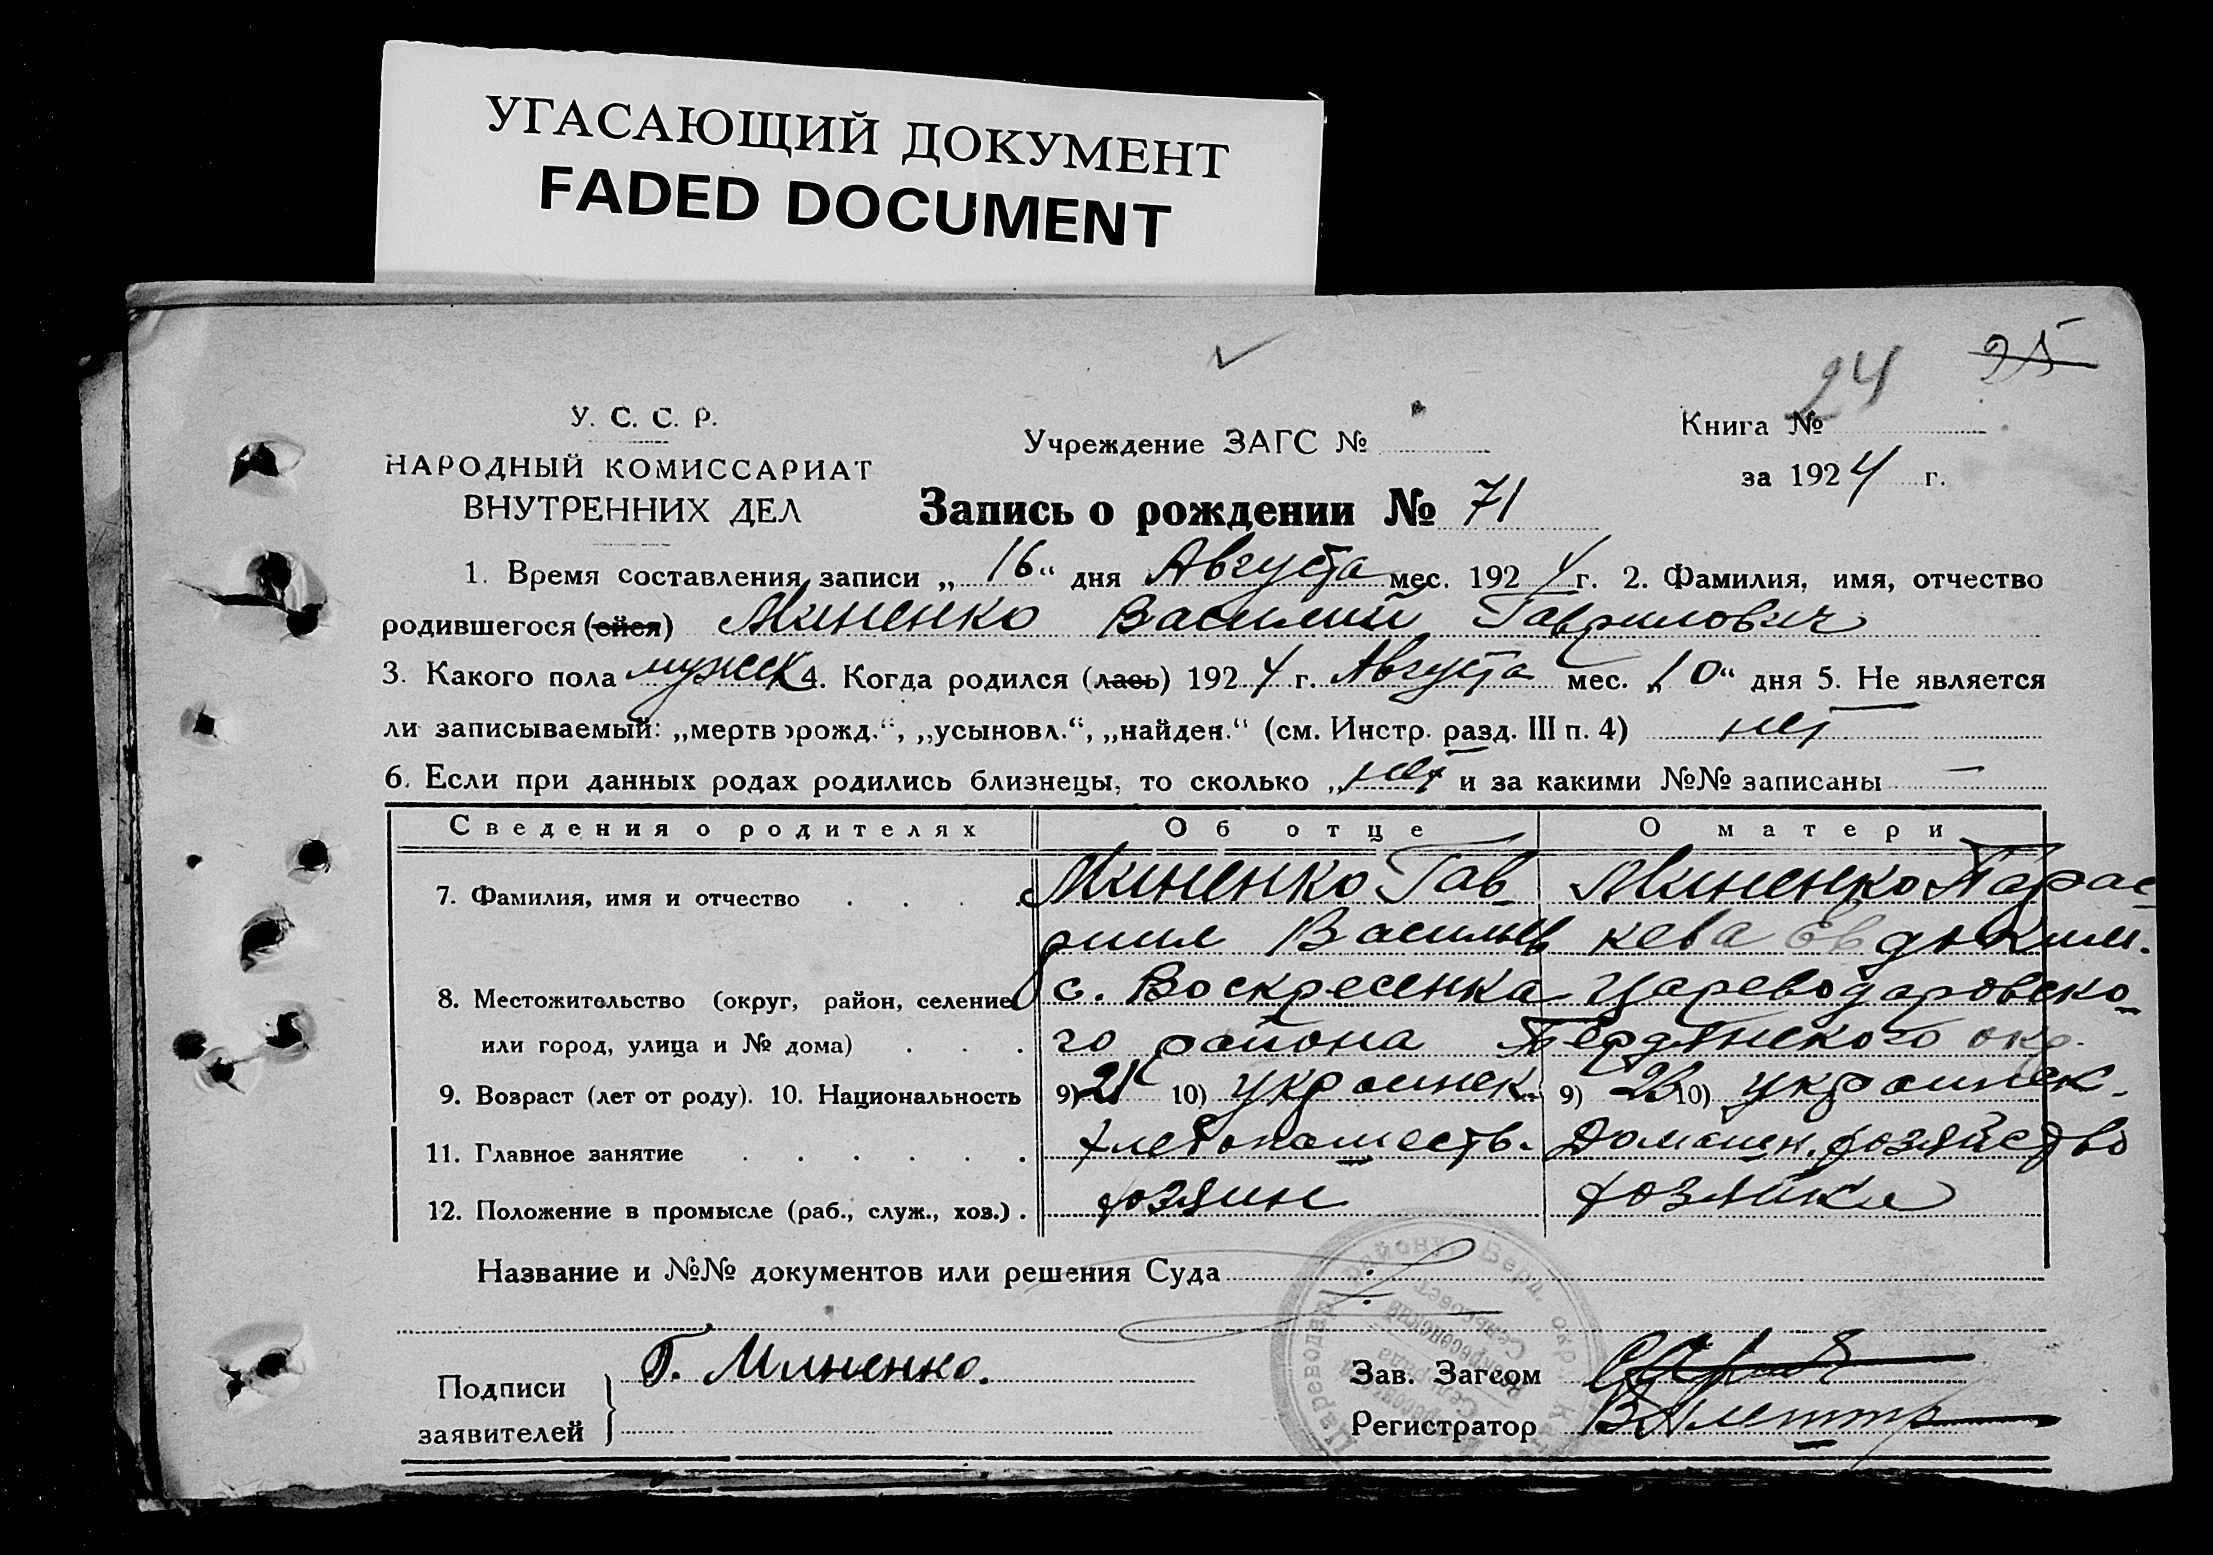 УГАСАЮЩИЙ ДОКУМЕНТ
FADED DOCUMENT
24 25
У. С. С. Р.
НАРОДНЫЙ КОМИССАРИАТ
ВНУТРЕННИХ ДЕЛ
Учреждение ЗАГС №
Книга №
за 1924 г.
Запись о рождении № 71
1. Время составления записи „16“ дня Августа мес. 1924 г. 2. Фамилия, имя, отчество
родившегося (ейся) Миненко Василий Гаврилович
3. Какого пола мужск 4. Когда родился (лась) 1924 г. Августа мес. „10“ дня 5. Не является
ли записываемый: „мертворожд.“, „усыновл.“, „найден.“ (см. Инстр. разд. III п. 4) нет
6. Если при данных родах родились близнецы, то сколько „нет и за какими №№ записаны —
Сведения о родителях Об отце О матери
7. Фамилия, имя и отчество . . . . Миненко Гав- Миненко Парас-
риил Васильев кева Евдоким.
8. Местожительство (округ, район, селение с. Воскресенка Цареводаровско-
или город, улица и № дома) . . . го района Бердянского окр.
9. Возраст (лет от роду). 10. Национальность 9) 21 10) украинск. 9) 23 10) украинск.
11. Главное занятие . . . . . . хлебопашеств. Домашн. хозяйство
12. Положение в промысле (раб., служ., хоз.) . хозяин хозяйка
Название и №№ документов или решения Суда
Подписи
заявителей
Г. Миненко.
Зав. Загсом
Регистратор